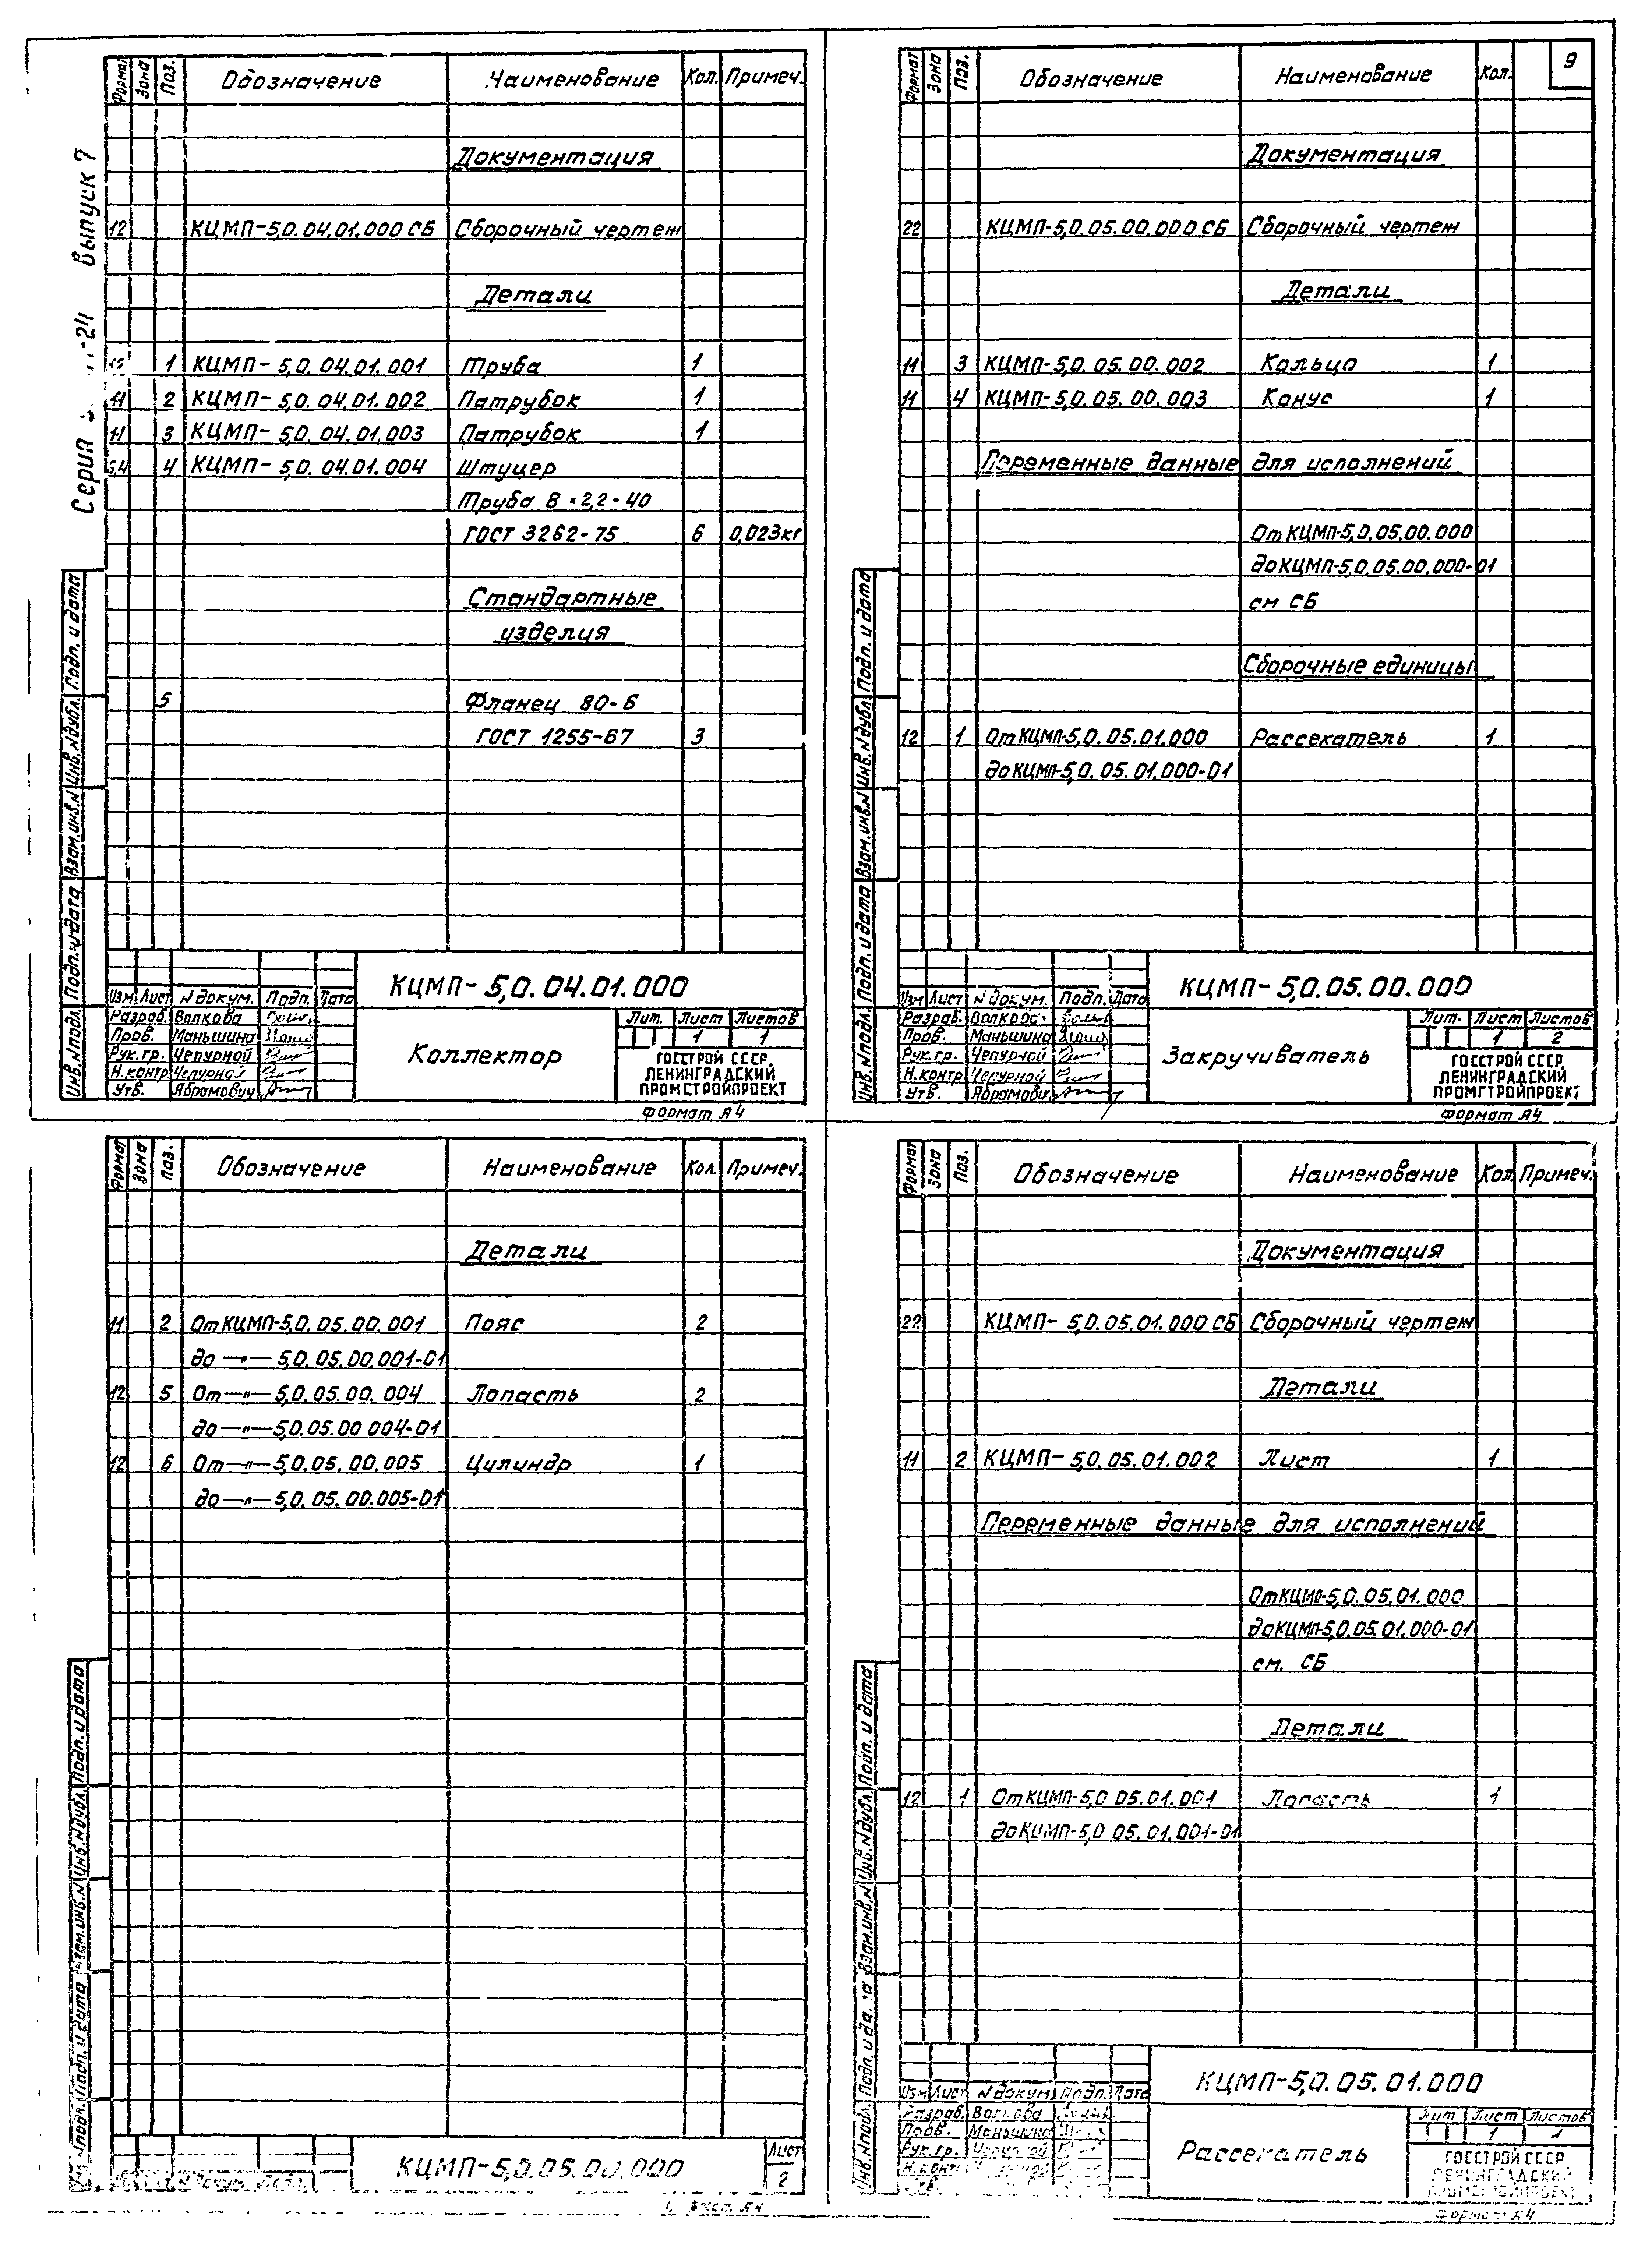 Серия
выпуск 7
9
Формат Зона Поз. Обозначение Наименование Кол. Примеч.
Документация
12 КЦМП-5,0.04.01.000 СБ Сборочный чертеж
Детали
1 КЦМП-5,0.04.01.001 Труба 1
11 2 КЦМП-5,0.04.01.002 Патрубок 1
11 3 КЦМП-5,0.04.01.003 Патрубок 1
Б4 4 КЦМП-5,0.04.01.004 Штуцер
Труба 8×2,2-40
ГОСТ 3262-75 6 0,023кг
Стандартные
изделия
5 Фланец 80-6
ГОСТ 1255-67 3
Инв.N подл. Подп. и дата Взам.инв.N Инв.N дубл. Подп. и дата
КЦМП-5,0.04.01.000
Изм Лист N докум. Подп. Дата
Разраб. Волкова
Пров. Маньшина
Рук.гр. Чепурной
Н.контр Чепурной
Утв. Абрамович
Коллектор
Лит. Лист Листов
1 1
ГОССТРОЙ СССР
ЛЕНИНГРАДСКИЙ
ПРОМСТРОЙПРОЕКТ
Формат А4
Формат Зона Поз. Обозначение Наименование Кол.
Документация
22 КЦМП-5,0.05.00.000 СБ Сборочный чертеж
Детали
11 3 КЦМП-5,0.05.00.002 Кольцо 1
11 4 КЦМП-5,0.05.00.003 Конус 1
Переменные данные для исполнений
От КЦМП-5,0.05.00.000
до КЦМП-5,0.05.00.000-01
см СБ
Сборочные единицы
12 1 От КЦМП-5,0.05.01.000 Рассекатель 1
до КЦМП-5,0.05.01.000-01
Инв.N подл. Подп. и дата Взам.инв.N Инв.N дубл. Подп. и дата
КЦМП-5,0.05.00.000
Изм Лист N докум. Подп. Дата
Разраб. Волкова
Пров. Маньшина
Рук.гр. Чепурной
Н.контр Чепурной
Утв. Абрамович
Закручиватель
Лит. Лист Листов
1 2
ГОССТРОЙ СССР
ЛЕНИНГРАДСКИЙ
ПРОМСТРОЙПРОЕКТ
Формат А4
Формат Зона Поз. Обозначение Наименование Кол. Примеч.
Детали
11 2 От КЦМП-5,0.05.00.001 Пояс 2
до —"— 5,0.05.00.001-01
12 5 От —"— 5,0.05.00.004 Лопасть 2
до —"— 5,0.05.00 004-01
12 6 От —"— 5,0.05.00.005 Цилиндр 1
до —"— 5,0.05.00.005-01
Подп. и дата Взам.инв.N Инв.N дубл. Подп. и дата
КЦМП-5,0.05.00.000
Лист
2
Формат Зона Поз. Обозначение Наименование Кол. Примеч.
Документация
22 КЦМП-5,0.05.01.000 СБ Сборочный чертеж
Детали
11 2 КЦМП-5,0.05.01.002 Лист 1
Переменные данные для исполнений
От КЦМП-5,0.05.01.000
до КЦМП-5,0.05.01.000-01
см. СБ
Детали
12 1 От КЦМП-5,0 05.01.001 Лопасть 1
до КЦМП-5,0 05.01.001-01
Инв.N подл. Подп. и дата Взам.инв.N Инв.N дубл. Подп. и дата
КЦМП-5,0.05.01.000
Изм Лист N докум Подп. Дата
Разраб. Волкова
Пров. Маньшина
Рук.гр. Чепурной
Н.контр
Рассекатель
Лит Лист Листов
1 1
ГОССТРОЙ СССР
ЛЕНИНГРАДСКИЙ
ПРОМСТРОЙПРОЕКТ
Формат А4